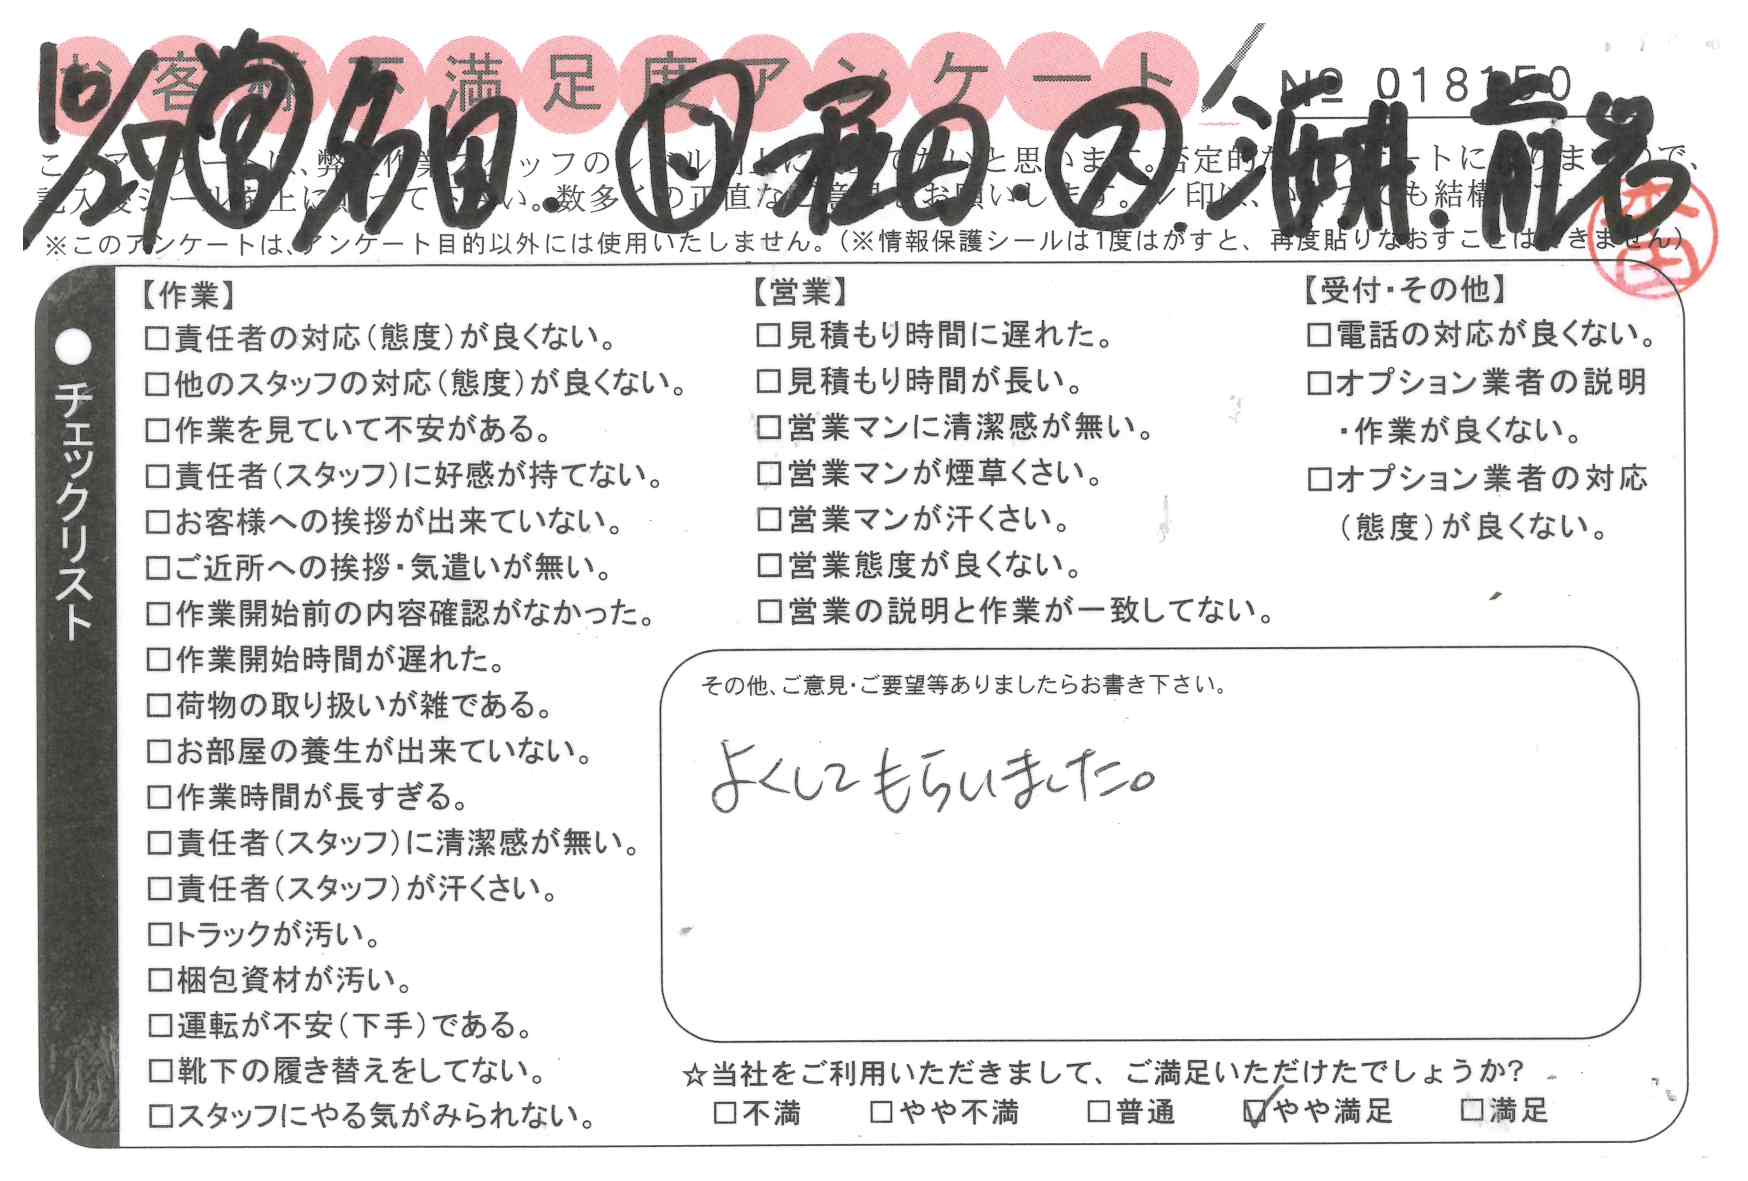 お客様不満足度アンケート
№ 018150
10/27 営 多田 . ト 稲田 ス .
※このアンケートは、アンケート目的以外には使用いたしません。（※情報保護シールは1度はがすと、再度貼りなおすことはできません）
●チェックリスト
【作業】
□責任者の対応（態度）が良くない。
□他のスタッフの対応（態度）が良くない。
□作業を見ていて不安がある。
□責任者（スタッフ）に好感が持てない。
□お客様への挨拶が出来ていない。
□ご近所への挨拶・気遣いが無い。
□作業開始前の内容確認がなかった。
□作業開始時間が遅れた。
□荷物の取り扱いが雑である。
□お部屋の養生が出来ていない。
□作業時間が長すぎる。
□責任者（スタッフ）に清潔感が無い。
□責任者（スタッフ）が汗くさい。
□トラックが汚い。
□梱包資材が汚い。
□運転が不安（下手）である。
□靴下の履き替えをしてない。
□スタッフにやる気がみられない。
【営業】
□見積もり時間に遅れた。
□見積もり時間が長い。
□営業マンに清潔感が無い。
□営業マンが煙草くさい。
□営業マンが汗くさい。
□営業態度が良くない。
□営業の説明と作業が一致してない。
【受付・その他】
□電話の対応が良くない。
□オプション業者の説明
・作業が良くない。
□オプション業者の対応
（態度）が良くない。
その他、ご意見・ご要望等ありましたらお書き下さい。
よくしてもらいました。
☆当社をご利用いただきまして、ご満足いただけたでしょうか?
□不満 □やや不満 □普通 ☑やや満足 □満足